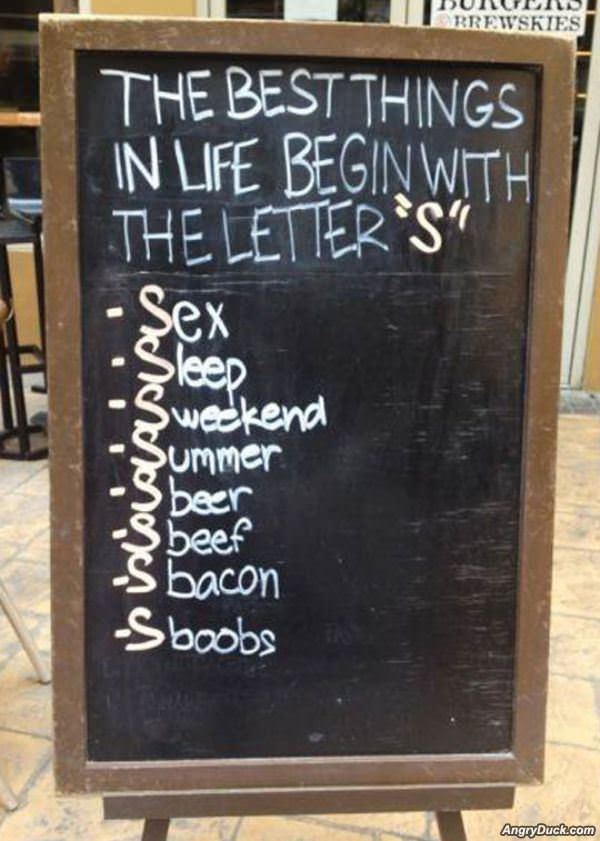 BURGERS
BREWSKIES
THE BEST THINGS
IN LIFE BEGIN WITH
THE LETTER "S"
- Sex
- Sleep
- Sweekend
- Summer
- Sbeer
- Sbeef
- Sbacon
- Sboobs
AngryDuck.com